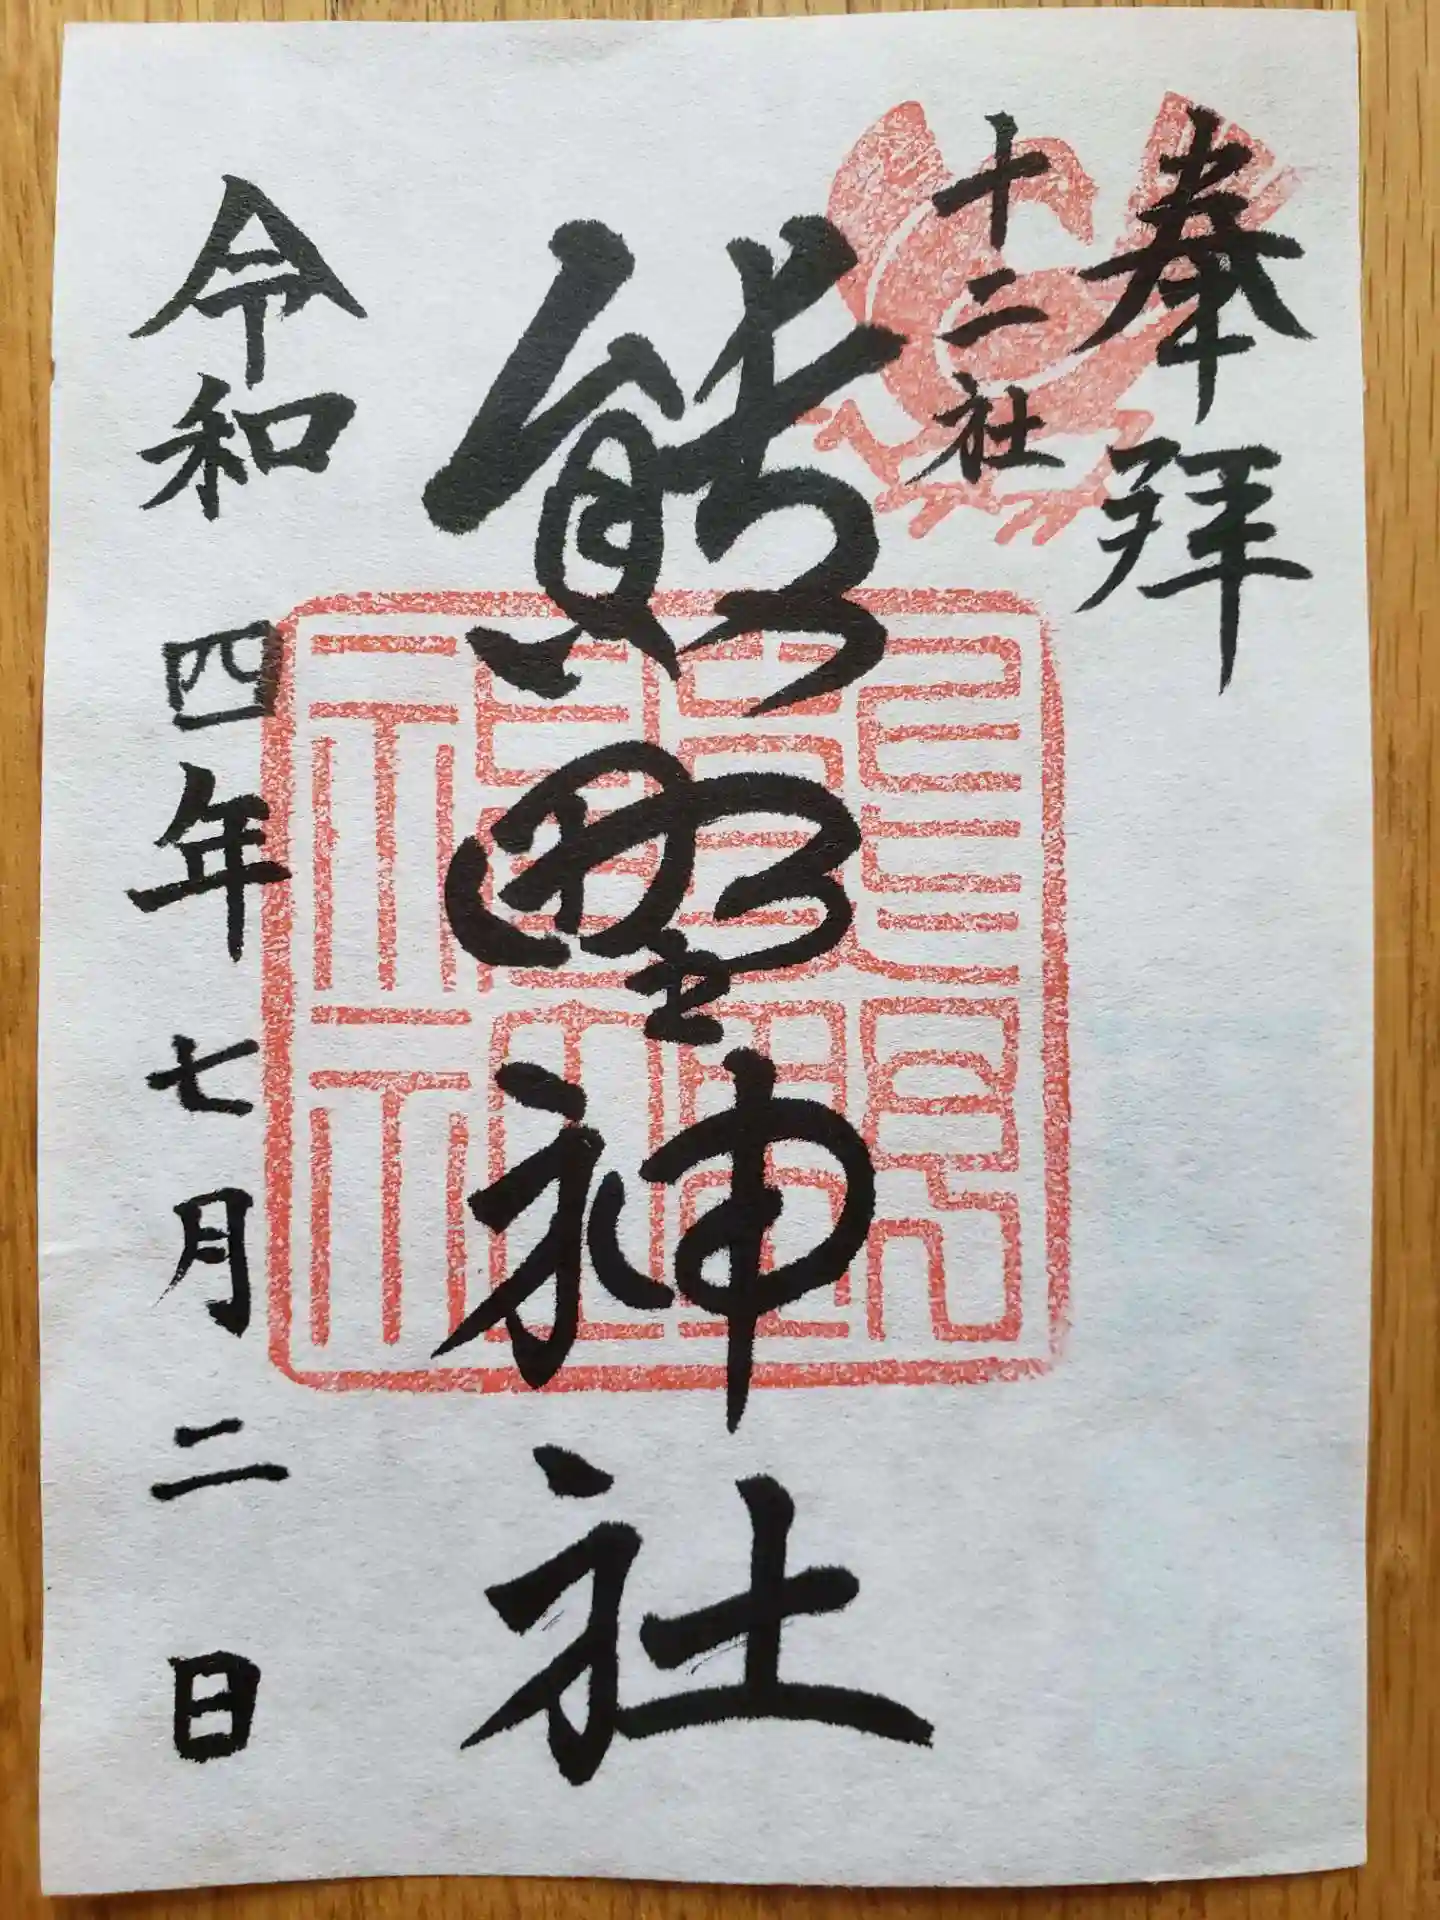 奉拜
十二社
熊野神社
令和四年七月二日